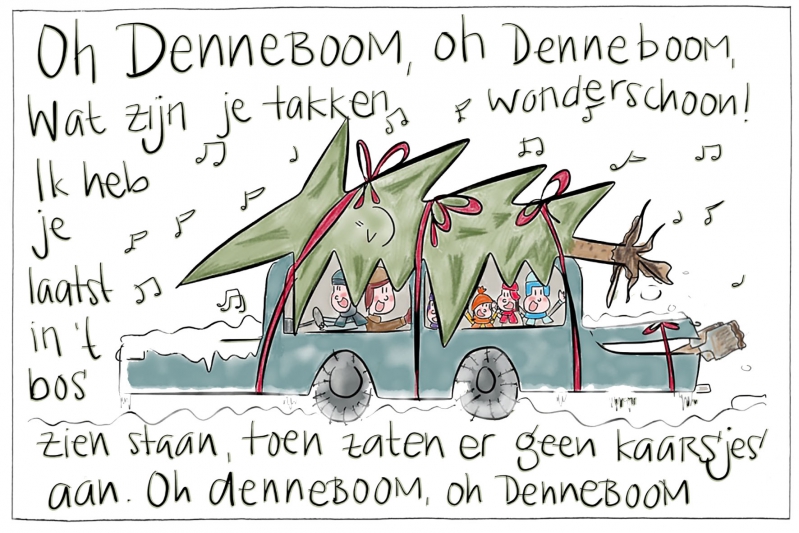 Oh DenneBOOM, oh Denneboom,
Wat zijn je takken wonderschoon!
Ik heb
je
laatst
in 't
bos
zien staan, toen zaten er geen kaarsjes
aan. Oh denneBOOM, oh DenneBOOM